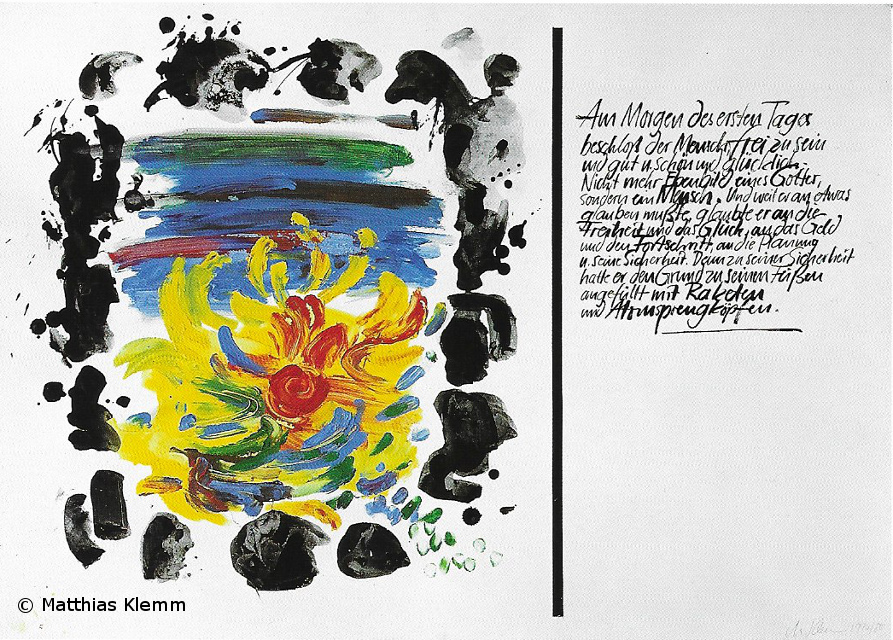 Am Morgen des ersten Tages
beschloß der Mensch, frei zu sein
und gut u. schön und glücklich.
Nicht mehr Ebenbild eines Gottes,
sondern ein Mensch. Und weil er an etwas
glauben mußte, glaubte er an die
Freiheit und das Glück, an das Geld
und den Fortschritt, an die Planung
u. seine Sicherheit. Denn zu seiner Sicherheit
hatte er den Grund zu seinen Füßen
angefüllt mit Raketen
und Atomsprengköpfen.
© Matthias Klemm